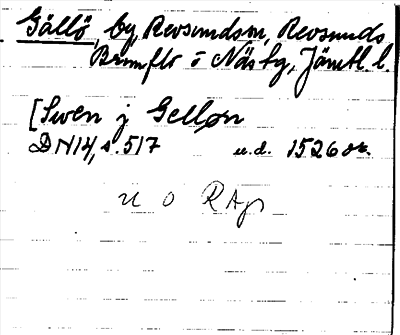 Gällö, by, Revsundsn, Revsunds,
Brunflo o Näs tg, Jämtl. l.
[Swen j Gelløn
DN14, s. 517 u.d. 1526
u o RAp